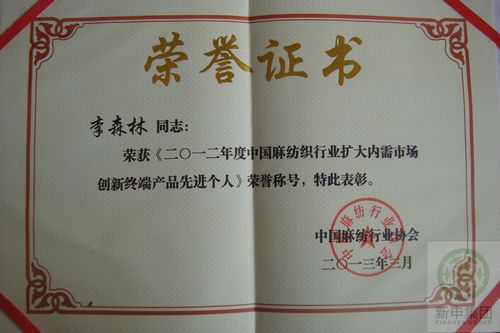 荣誉证书
李森林 同志：
荣获《二〇一二年度中国麻纺织行业扩大内需市场
创新终端产品先进个人》荣誉称号，特此表彰。
中国麻纺行业协会
二〇一三年三月
新申集团
XINSHEN GROUP